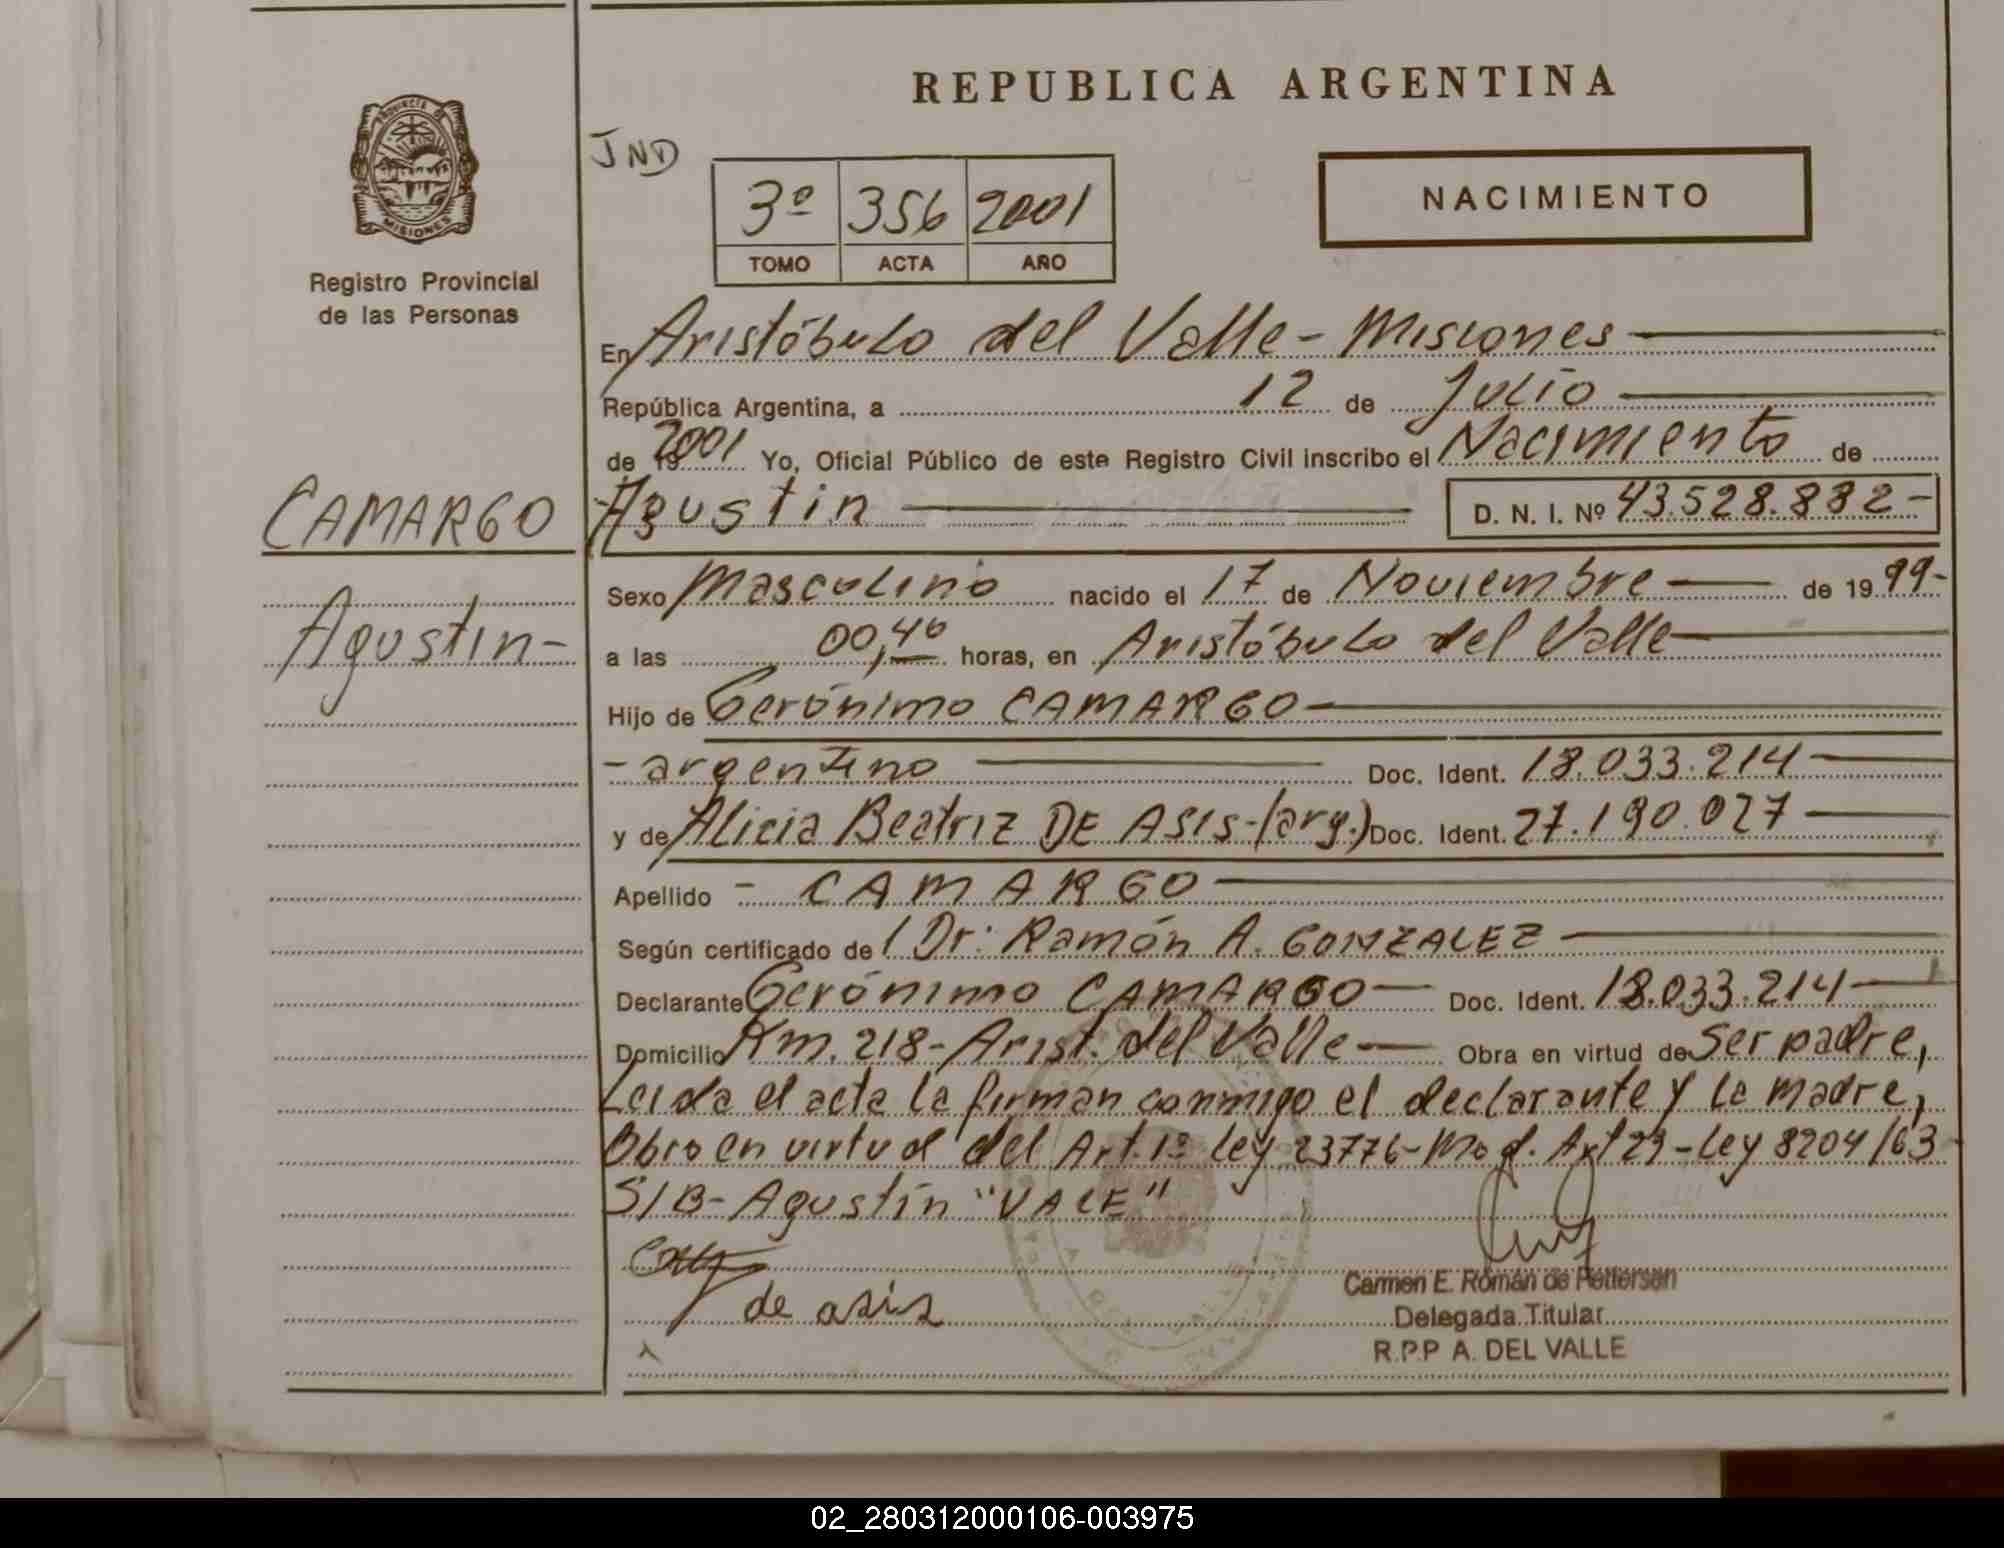 REPUBLICA ARGENTINA
PROVINCIA DE
MISIONES
Registro Provincial
de las Personas
JND
3º 356 2001
TOMO ACTA AÑO
NACIMIENTO
En Aristóbulo del Valle - Misiones
República Argentina, a 12 de Julio
de 19 2001 Yo, Oficial Público de este Registro Civil inscribo el Nacimiento de
CAMARGO
- Agustin D. N. I. Nº 43.528.882-
Sexo Masculino nacido el 17 de Noviembre de 19 99-
Agustin-
a las 00,40 horas, en Aristóbulo del Valle
Hijo de Gerónimo CAMARGO
- argentino Doc. Ident. 18.033.214
y de Alicia Beatriz DE ASIS-(arg.) Doc. Ident. 27.190.027
Apellido - CAMARGO
Según certificado de l Dr: Ramón A. GONZALEZ
Declarante Gerónimo CAMARGO Doc. Ident. 18.033.214
Domicilio Km. 218- Arist. del Valle Obra en virtud de ser padre,
Leida el acta la firman conmigo el declarante y la madre,
Obro en virtud del Art. 1º Ley 23776-Mod. Art 29-Ley 8204/63
S/B- Agustín "VALE"
de asis
Carmen E. Román de Pettersen
Delegada Titular
R.P.P A. DEL VALLE
02_280312000106-003975